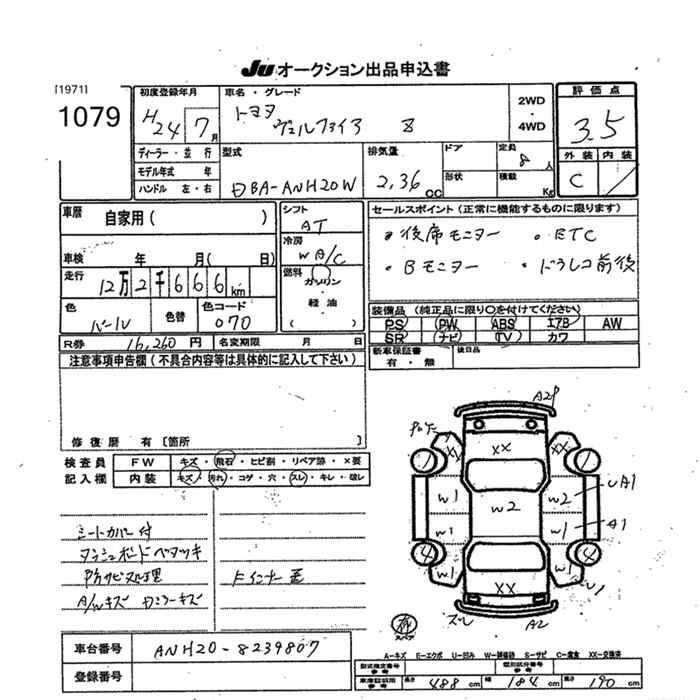 JU オークション出品申込書
[1971]
1079
初度登録年月
H24 7月
車名・グレード
トヨタ
ヴェルファイア 8
2WD
・
4WD
評価点
3.5
外装 内装
C
ディーラー・並行
モデル年式 年
ハンドル 左・右
型式
DBA-ANH20W
排気量
2,36 CC
ドア
形状
定員
8人
積載
Kg
車歴
自家用( )
車検 年 月(日)
走行
12万2千666km
色
パール
色替
色コード
070
R券 16,260円 名変期限 月 日
シフト
AT
冷房
WA/C
燃料
ガソリン
・
軽油
( )
セールスポイント(正常に機能するものに限ります)
・後席モニター ・ETC
・Bモニター ・ドラレコ前後
装備品(純正品に限り○を付けてください)
PS PW ABS エアB AW
SR ナビ TV カワ
新車保証書
有・無
後日品
注意事項申告欄(不具合内容等は具体的に記入して下さい)
修復歴 有[箇所 ]
検査員
記入欄
FW キズ・飛石・ヒビ割・リペア跡・×要
内装 キズ・汚れ・コゲ・穴・スレ・キレ・破レ
シートカバー付
ダッシュボードベタツキ
下廻サビヌル処理
A/Wキズ Dミラーキズ
Fインナー歪
A2P
XX XX XX
W1 W2 W2 UA1
W1 W1 A1
4 4
W1 W1 U1
XX
スレ A2
スペア
A-キズ E-エクボ U-凹み W-補修跡 S-サビ C-腐食 XX-交換済
車台番号
ANH20-8239807
登録番号
型式指定番号
参考
類別区分番号
参考
車庫証明用
参考
長さ 488cm 幅 184cm 高さ 190cm